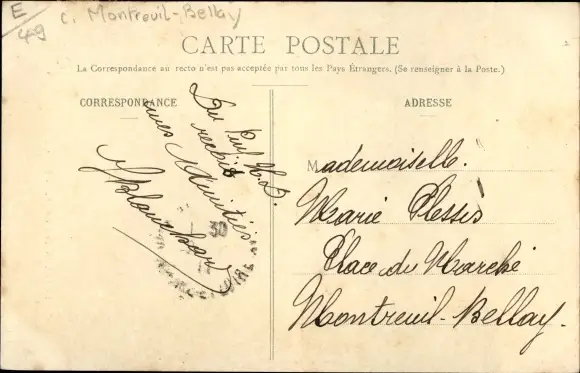 E
49
c. Montreuil-Bellay
CARTE POSTALE
La Correspondance au recto n'est pas acceptée par tous les Pays Étrangers. (Se renseigner à la Poste.)
CORRESPONDANCE
ADRESSE
Du Puy N. D.
mes Amitiés
30
Mademoiselle.
Marie Plessis
Place du Marché
Montreuil-Bellay.